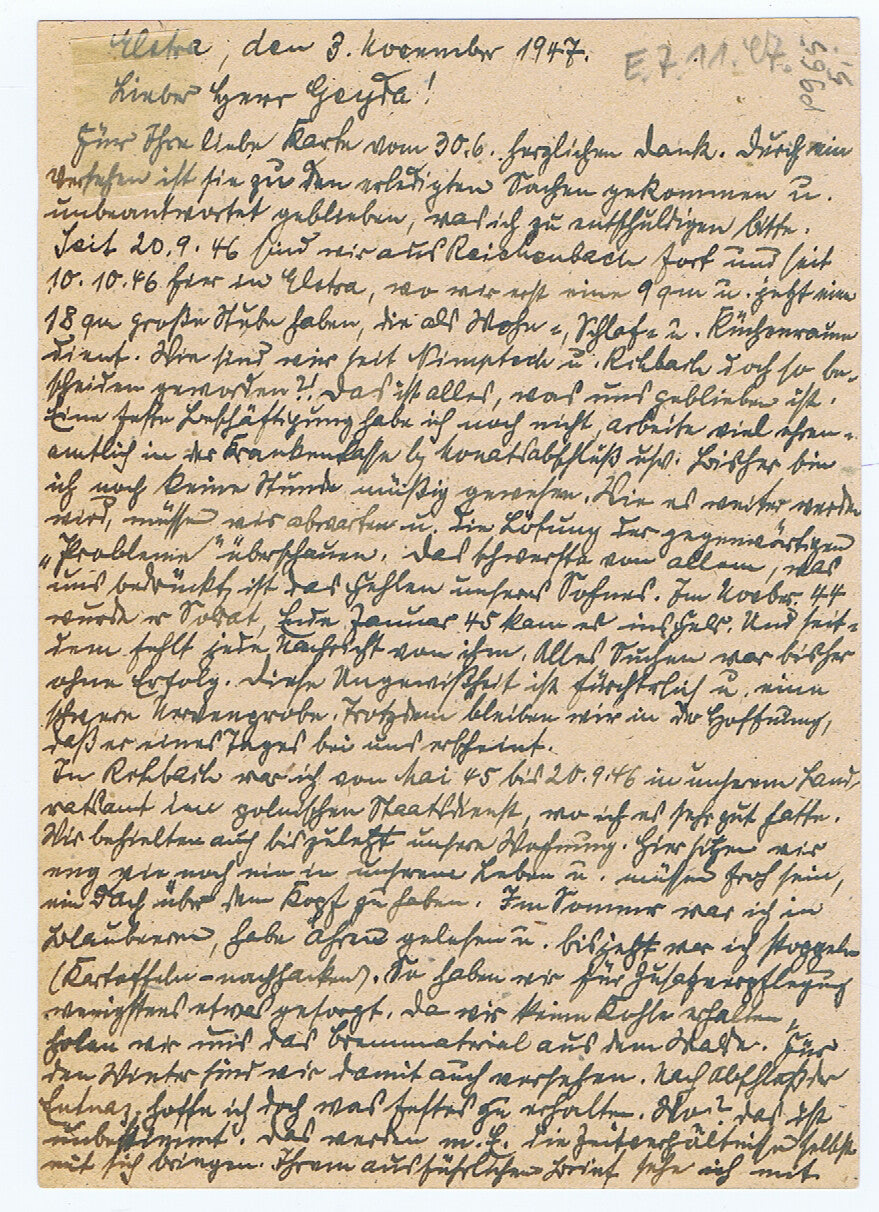 Elstra, den 3. November 1947.
E. 7.11.47.
Lieber Herr Geyda!
Für Ihre liebe Karte vom 30.6. herzlichen Dank. Durch ein
Versehen ist sie zu den erledigten Sachen gekommen u.
unbeantwortet geblieben, was ich zu entschuldigen bitte.
Seit 20.9.46 sind wir aus Reichenbach fort und seit
10.10.46 hier in Elstra, wo wir erst eine 9 qm u. jetzt eine
18 qm große Stube haben, die als Wohn-, Schlaf- u. Küchenraum
dient. Wie sind wir seit Nimptsch u. Rchbach doch so be-
scheiden geworden?! Das ist alles, was uns geblieben ist.
Eine feste Beschäftigung habe ich noch nicht, arbeite viel ehren-
amtlich in der Krankenkasse b/ Monatsabschluß usw. Bisher bin
ich noch keine Stunde müßig gewesen. Wie es weiter werden
wird, müssen wir abwarten u. die Lösung der gegenwärtigen
"Probleme" überschauen. Das schwerste von allem, was
uns bedrückt, ist das Fehlen unseres Sohnes. Im Novber 44
wurde er Soldat, Ende Januar 45 kam er ins Feld. Und seit-
dem fehlt jede Nachricht von ihm. Alles Suchen war bisher
ohne Erfolg. Diese Ungewißheit ist fürchterlich u. eine
schwere Nervenprobe. Trotzdem bleiben wir in der Hoffnung,
daß er eines Tages bei uns erscheint.
In Rchbach war ich von Mai 45 bis 20.9.46 in unserem Land-
ratsamt im polnischen Staatsdienst, wo ich es sehr gut hatte.
Wir behielten auch bis zuletzt unsere Wohnung. Hier sitzen wir
eng wie noch nie in unserem Leben u. müssen froh sein,
ein Dach über dem Kopf zu haben. Im Sommer war ich in
Blaubeeren, habe Ähren gelesen u. bis jetzt war ich stoppeln
(Kartoffeln-nachhacken). So haben wir für Zusatzverpflegung
wenigstens etwas gesorgt. Da wir keine Kohle erhalten,
holen wir uns das Brennmaterial aus dem Walde. Für
den Winter sind wir damit auch versehen. Nach Abschluß der
Entnaz. hoffe ich doch was festes zu erhalten. Wo? das ist
unbestimmt. Das werden m.E. die Zeitverhältnisse selbst
mit sich bringen. Ihrem ausführlichen Brief sehe ich mit